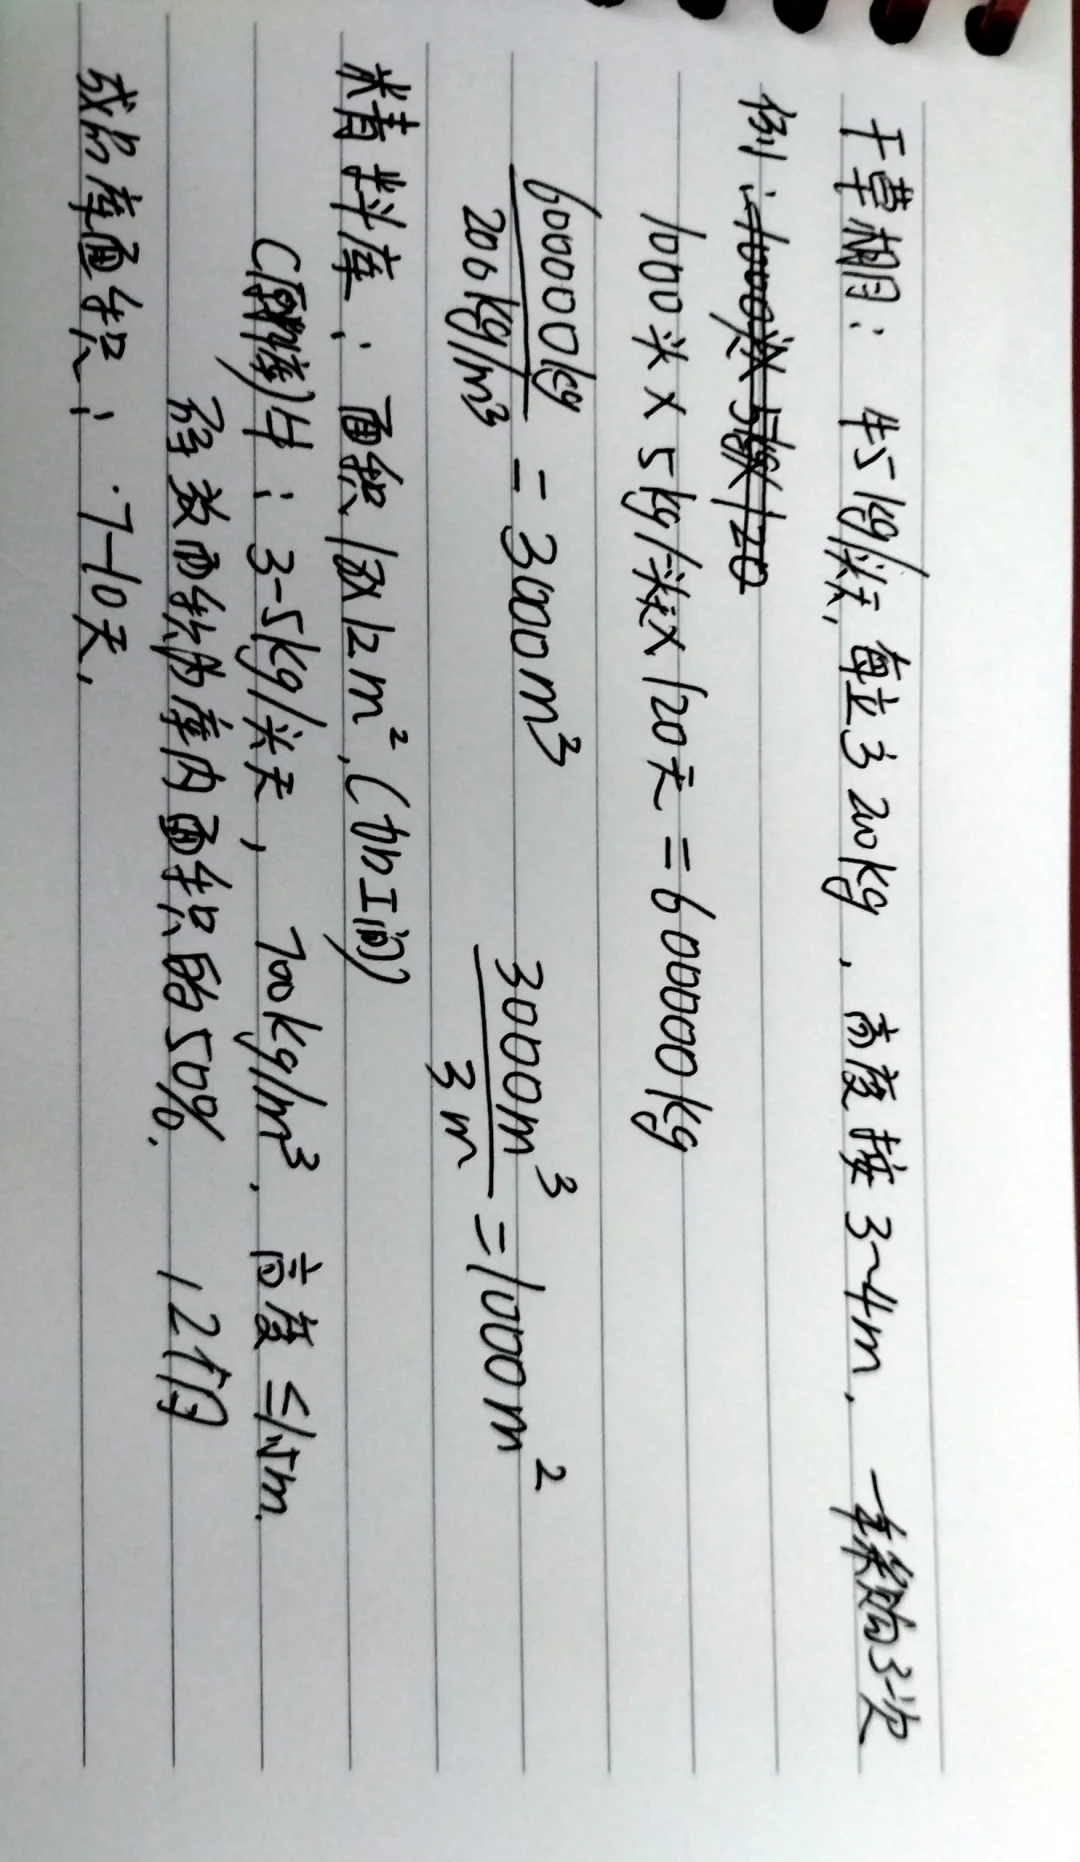 干草棚：牛5kg/头天，每立方200kg，高度按3~4m，一年采购3次
例：1000头×5kg×120
1000头×5kg/头天×120天=600000kg
600000kg/200kg/m³=3000m³ 3000m³/3m=1000m²
精料库：面积1头12m²，(加工间)
(原料库)牛：3-5kg/头天，700kg/m³，高度≤1.5m.
有效面积为库内面积的50%. 1个月
成品库面积：7-10天.